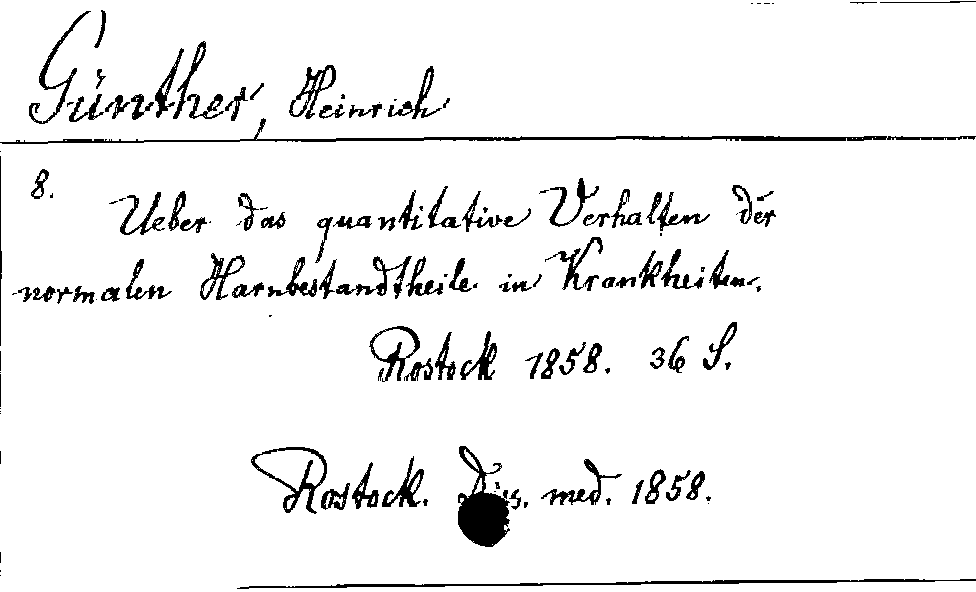 Günther, Heinrich
8.
Ueber das quantitative Verhalten der
normalen Harnbestandtheile in Krankheiten.
Rostock 1858. 36 S.
Rostock. Dis. med. 1858.